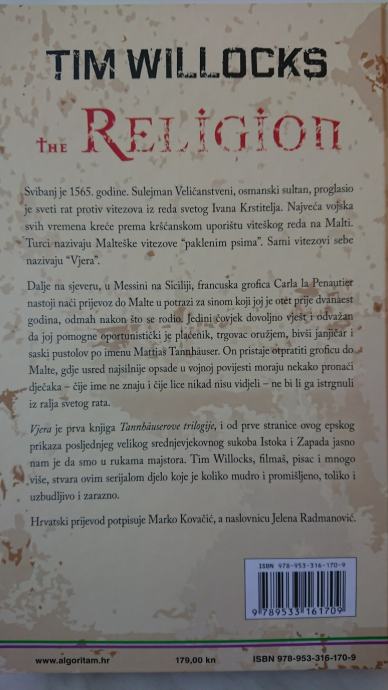 TIM WILLOCKS
THE RELIGION
Svibanj je 1565. godine. Sulejman Veličanstveni, osmanski sultan, proglasio
je sveti rat protiv vitezova iz reda svetog Ivana Krstitelja. Najveća vojska
svih vremena kreće prema kršćanskom uporištu viteškog reda na Malti.
Turci nazivaju Malteške vitezove "paklenim psima". Sami vitezovi sebe
nazivaju "Vjera".
Dalje na sjeveru, u Messini na Siciliji, francuska grofica Carla la Penautier
nastoji naći prijevoz do Malte u potrazi za sinom koji joj je otet prije dvanaest
godina, odmah nakon što se rodio. Jedini čovjek dovoljno vješt i odvažan
da joj pomogne oportunistički je plaćenik, trgovac oružjem, bivši janjičar i
saski pustolov po imenu Mattias Tannhauser. On pristaje otpratiti groficu do
Malte, gdje usred najsilnije opsade u vojnoj povijesti moraju nekako pronaći
dječaka – čije ime ne znaju i čije lice nikad nisu vidjeli – ne bi li ga istrgnuli
iz ralja svetog rata.
Vjera je prva knjiga Tannhäuserove trilogije, i od prve stranice ovog epskog
prikaza posljednjeg velikog srednjevjekovnog sukoba Istoka i Zapada jasno
nam je da smo u rukama majstora. Tim Willocks, filmaš, pisac i mnogo
više, stvara ovim serijalom djelo koje je koliko mudro i promišljeno, toliko i
uzbudljivo i zarazno.
Hrvatski prijevod potpisuje Marko Kovačić, a naslovnicu Jelena Radmanović.
ISBN 978-953-316-170-9
9 789533 161709
www.algoritam.hr 179,00 kn ISBN 978-953-316-170-9